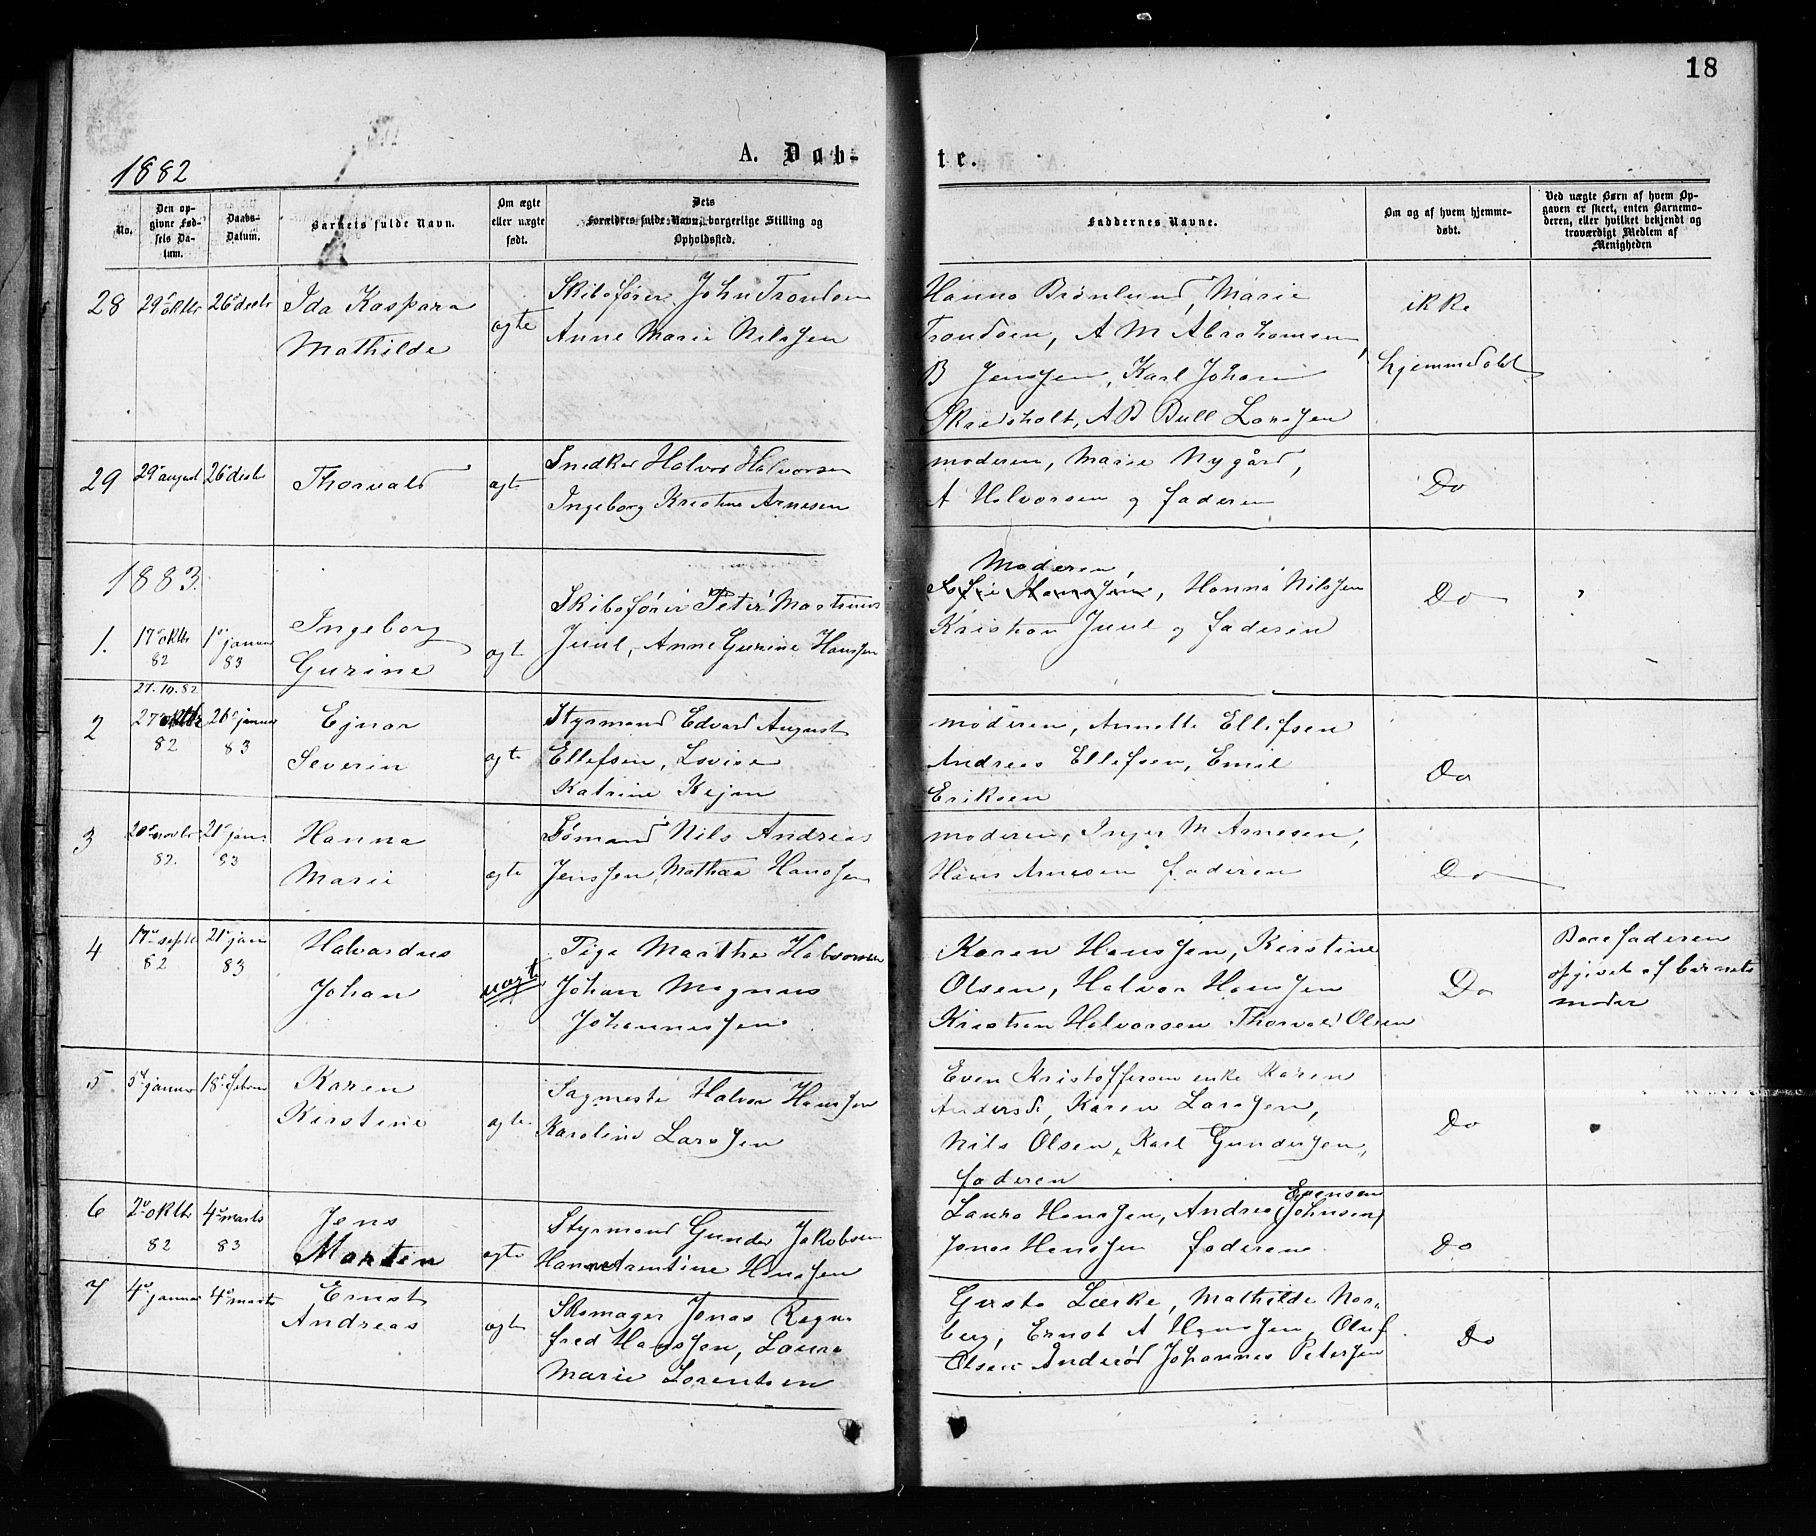 18
1882
A. Døb-
te.
No.
Den opgivne Fødsels Datum.
Daabs-Datum.
Barnets fulde Navn.
Om ægte eller uægte født.
Dets Forældres fulde Navn, borgerlige Stilling og Opholdssted.
Faddernes Navne.
Om og af hvem hjemmedøbt.
Ved uægte Børn af hvem Opgaven er skeet, enten Barnemoderen, eller hvilket bekjendt og troværdigt Medlem af Menigheden
28 29de oktbr 26de decbr
Ida Kaspara
Mathilde
ægte
Skibsfører John Trondsen
Anne Marie Nilssen
Hanna Brønlund, Marie
Trondsen, A M Abrahamsen,
B Jenssen, Karl Johan
A B Bull Larssen
ikke
hjemmedøbt
29 29de august 26de decbr
Thorvald
ægte
Snedker Halvor Halvorsen
Ingeborg Kristine Arnesen
moderen, Marie Nygård,
A Halvorsen og faderen
Do
1883.
1. 17de oktbr 82 1ste januar 83
Ingeborg
Gurine
ægte
Skibsfører Peter Martinus
Juul, Anne Gurine Hanssen
Moderen,
Sofie Hanssen, Hanna Nilssen
Kristian Juul og faderen
Do
27.10.82
2 27de oktbr 82 26de januar 83
Ejnar
Severin
ægte
Styrmand Edvard August
Ellefsen, Lovise
Katrine Kejan
moderen, Annette Ellefsen
Andreas Ellefsen, Emil
Eriksen
Do
3 20de novbr 82. 21de jan. 83
Hanna
Marie
ægte
Sømand Nils Andreas
Jenssen, Mathea Hanssen
moderen, Inger M Arnesen,
Hans Arnesen faderen
Do
4 17de septbr 82 21de jan 83
Halvardus
Johan
uægte
Pige Marthe Halvorsen
Johan Magnus
Johannessen
Karen Hanssen, Kirstine
Olsen, Halvor Hanssen
Kristian Halvorsen Thorvald Olsen
Do
Barnefaderen
opgivet af barnets
moder
5 5te januar 18de februar
Karen
Kirstine
ægte
Sagmester Halvor Hanssen
Karoline Larssen
Even Kristoffersens enke Karen
Andersd., Karen Larssen,
Nils Olsen, Karl Gundersen,
faderen
Do
6 2den oktbr 82 4de marts 83
Jens
Martin
ægte
Styrmand Gunder Jakobsen
Hanne Arentine Hanssen
Evensen
Laura Hanssen, Andrea (Johnsen)
Jonas Hanssen faderen
Do
7 4de januar 4de marts
Ernst
Andreas
ægte
Skomager Jonas Ragn-
fred Hanssen, Laura
Marie Lorentsen
Gusta Lærke, Mathilde Nor-
berg, Ernst A Hanssen, Oluf
Olsen Anderød Johannes Petersen
Do